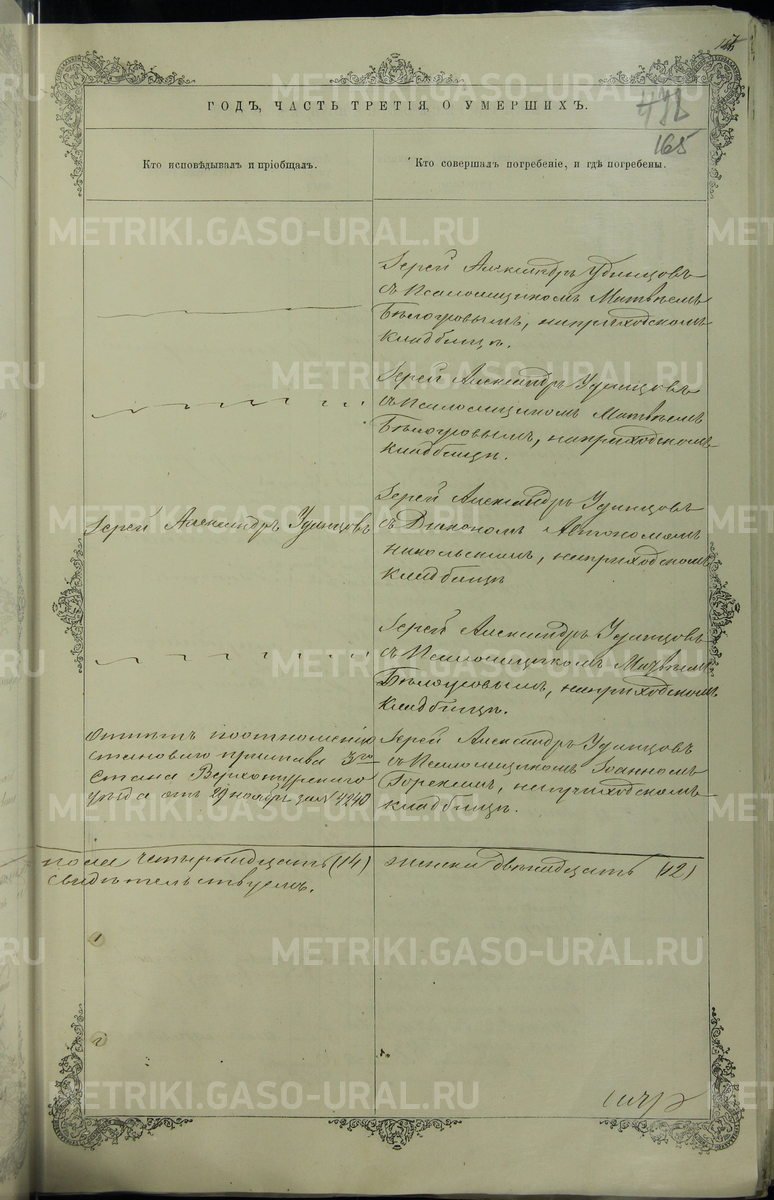 187
ГОДЪ, ЧАСТЬ ТРЕТІЯ, О УМЕРШИХЪ.
165
Кто исповѣдывалъ и пріобщалъ.
Кто совершалъ погребеніе, и гдѣ погребены.
Іерей Александръ Удинцовъ
съ Псаломщикомъ Матвѣемъ
Бѣлоусовымъ, на приходскомъ
кладбищѣ.
Іерей Александръ Удинцовъ
съ Псаломщикомъ Матвѣемъ
Бѣлоусовымъ, на приходскомъ
кладбищѣ.
Іерей Александръ Удинцовъ
Іерей Александръ Удинцовъ
съ Діакономъ Автономомъ
Никольскимъ, на приходскомъ
кладбищѣ
Іерей Александръ Удинцовъ
съ Псаломщикомъ Матвѣемъ
Бѣлоусовымъ, на приходскомъ
кладбищѣ.
Отпѣтъ по отношенію
Становаго пристава 3го
Стана Верхотурскаго
уѣзда отъ 29 ноября за № 4240
Іерей Александръ Удинцовъ
съ Псаломщикомъ Іоанномъ
на приходскомъ
кладбищѣ.
пола четырнадцать (14) женска двѣнадцать (12)
свидѣтельствуемъ.
METRIKI.GASO-URAL.RU